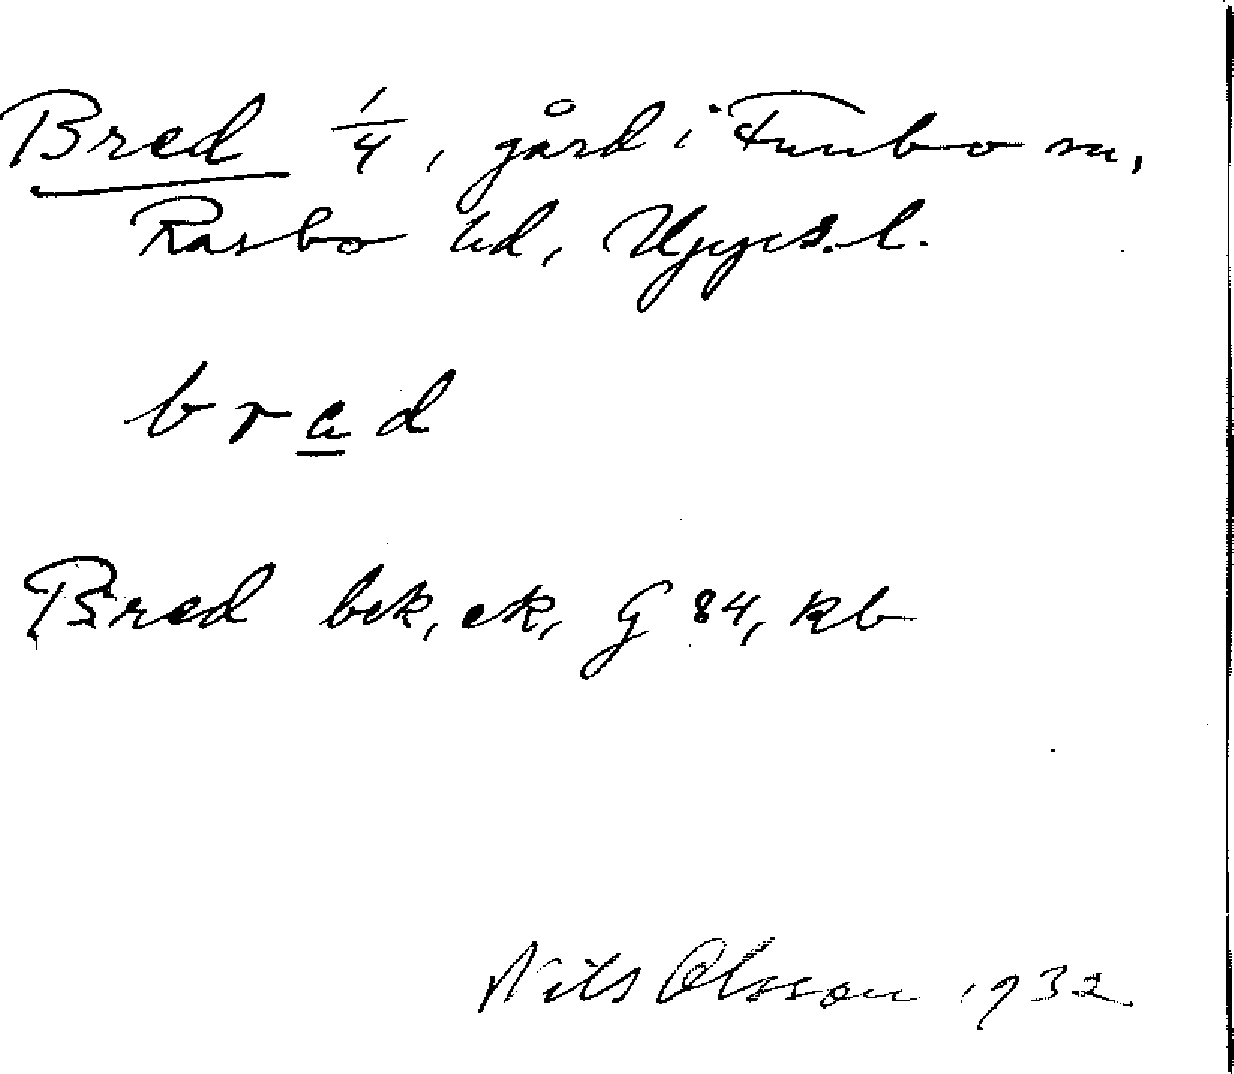 Bred 1/4, gård i Funbo sn,
Rasbo hd, Upps. l.
brad
Bred bek, ek, G 84, kb
Nils Olsson 1932